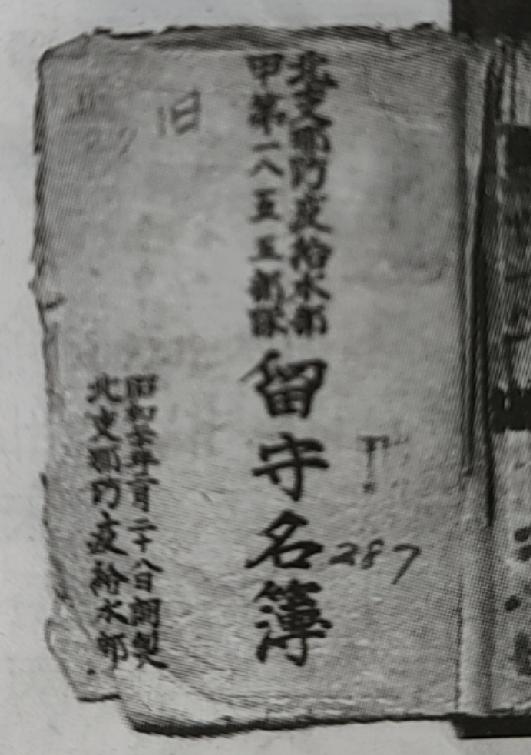 北支那防疫給水部
甲第一八五五部隊
留守名簿
287
旧
昭和 年 月二十八日調製
北支那防疫給水部